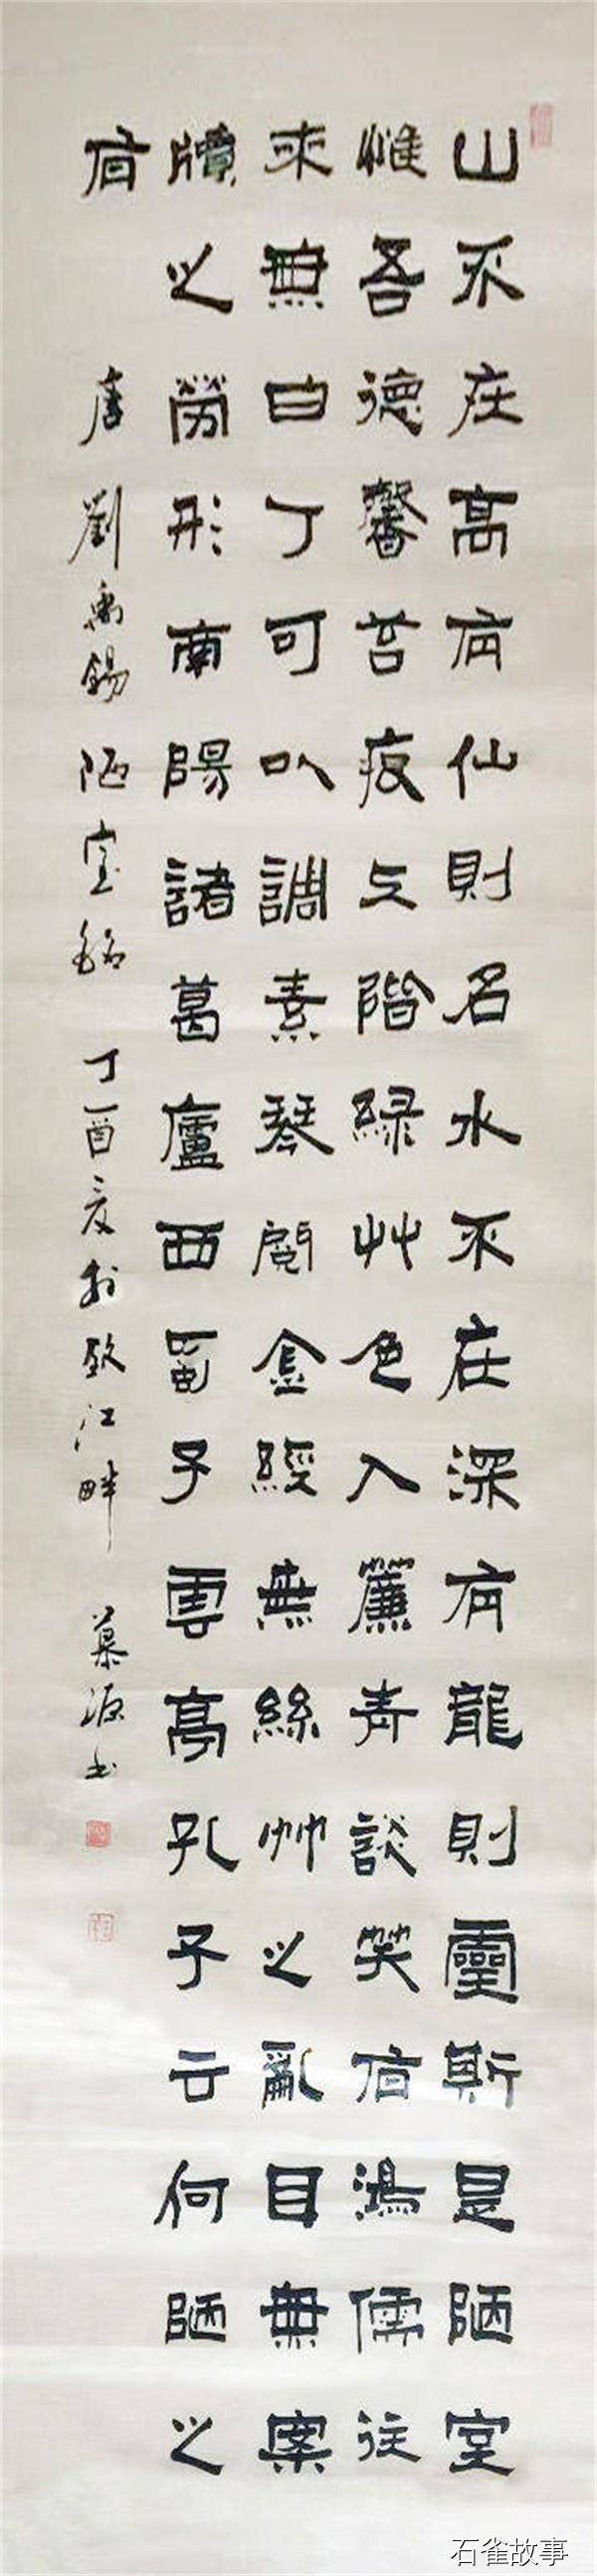 山不在高有仙則名水不在深有龍則靈斯是陋室
惟吾德馨苔痕上階綠艸色入簾青談笑有鴻儒往
來無白丁可以調素琴閱金經無絲竹之亂目無案
牘之勞形南陽諸葛廬西蜀子雲亭孔子云何陋之
有 唐劉禹錫陋室銘 丁酉夏於江畔 慕源書
石雀故事